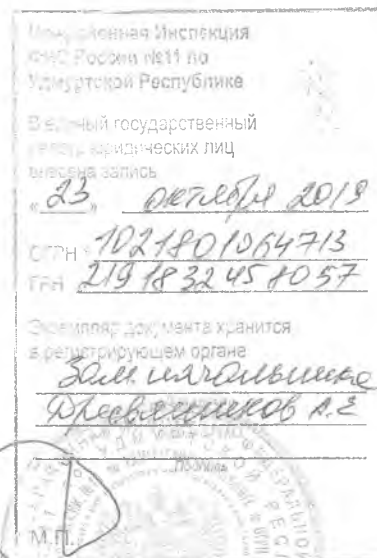 Межрайонная Инспекция
ФНС России №11 по
Удмуртской Республике
В единый государственный
реестр юридических лиц
внесена запись
«23» октября 2019
ОГРН 1021801064713
ГРН 2191832458057
Экземпляр документа хранится
в регистрирующем органе
Зам. начальника
Древятников А.Е
Подпись
М.П.